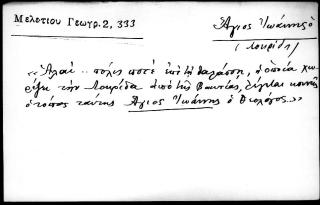 Μελετίου Γεωγρ. 2, 333
Ἅγιος Ἰωάννης ὁ
(Λοκρίδι)
«Ἀλαὶ .. πόλις ποτὲ ἐπὶ τῇ θαλάσσῃ, ἡ ὁποία χω-
ρίζει τὴν Λοκρίδα ἀπὸ τῆς Βοιωτίας, λέγεται κοινῶς
ὁ τόπος ταύτης Ἅγιος Ἰωάννης ὁ Θεολόγος.»